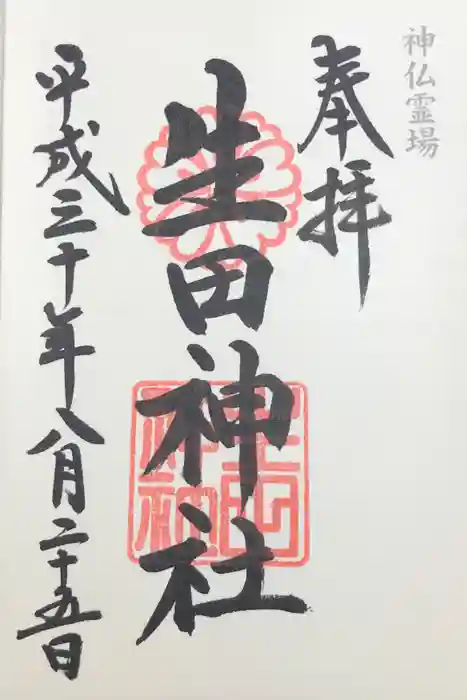 神仏霊場
奉拝
生田神社
平成三十年八月二十五日